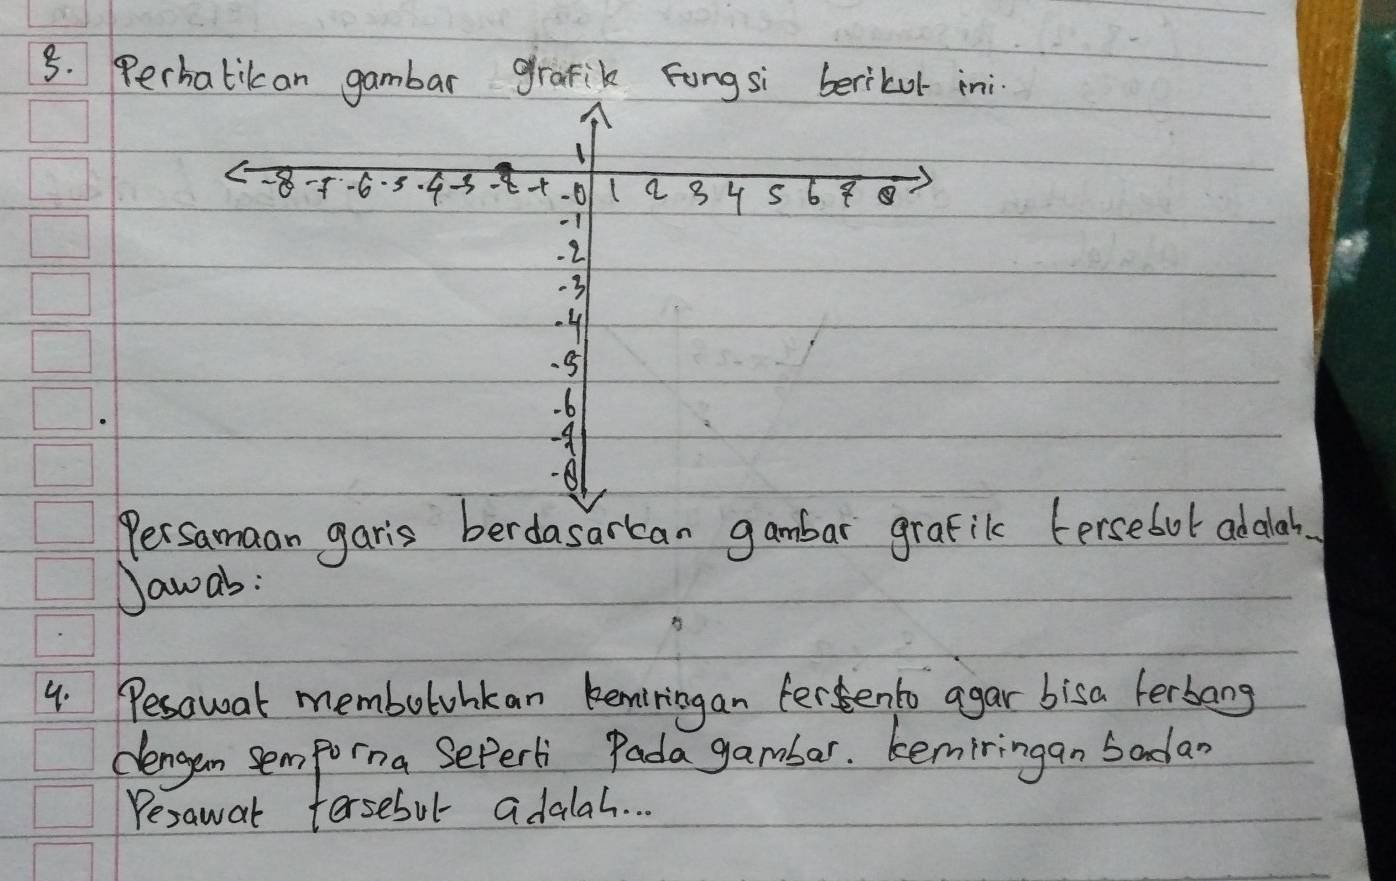 3. Perhatikan gambar grafik fungsi berikut ini.
1
-8 -7 -6 -5 -4 -3 -2 -1 -0 1 2 3 4 5 6 7 8
-1
-2
-3
-4
-5
-6
-7
-8
Persamaan garis berdasarkan gambar grafik tersebut adalah...
Jawab:
4. Pesawat membutuhkan kemiringan tertento agar bisa terbang
dengan semporna seperti pada gambar. kemiringan badan
Pesawat tersebut adalah...